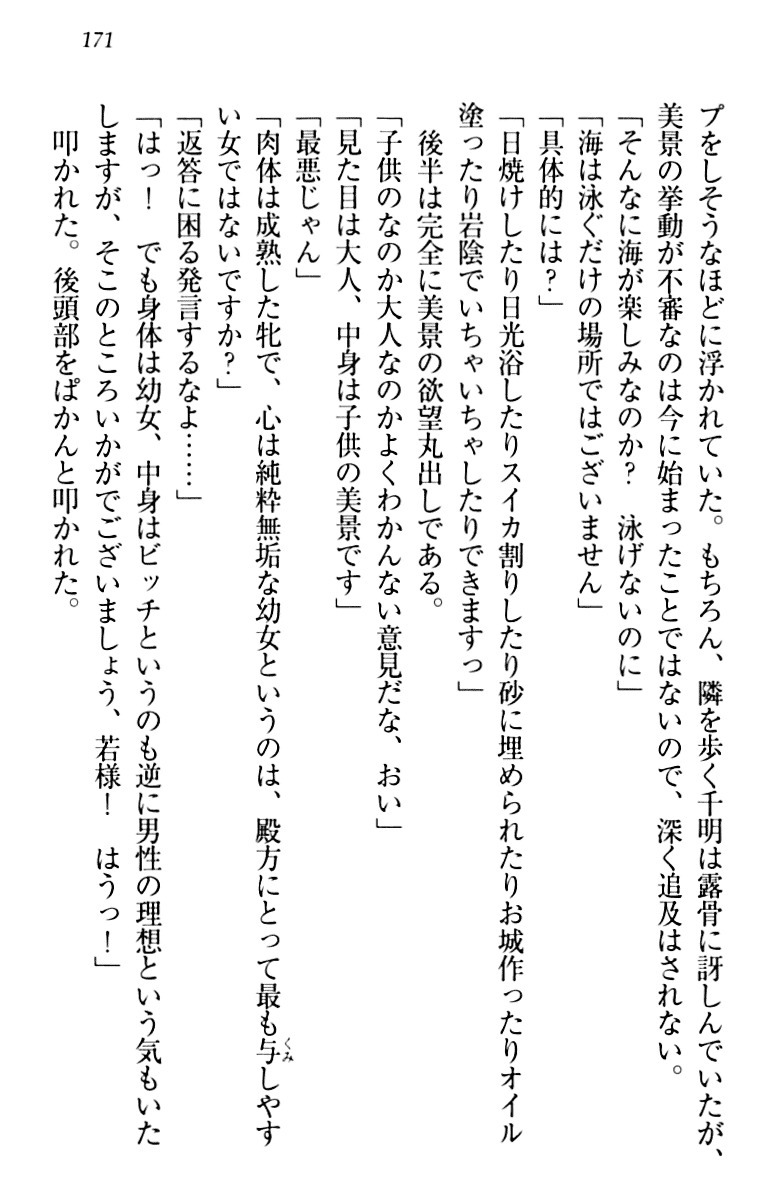 171
プをしそうなほどに浮かれていた。もちろん、隣を歩く千明は露骨に訝しんでいたが、
美景の挙動が不審なのは今に始まったことではないので、深く追及はされない。
「そんなに海が楽しみなのか？　泳げないのに」
「海は泳ぐだけの場所ではございません」
「具体的には？」
「日焼けしたり日光浴したりスイカ割りしたり砂に埋められたりお城作ったりオイル
塗ったり岩陰でいちゃいちゃしたりできますっ」
後半は完全に美景の欲望丸出しである。
「子供のなのか大人なのかよくわかんない意見だな、おい」
「見た目は大人、中身は子供の美景です」
「最悪じゃん」
「肉体は成熟した牝で、心は純粋無垢な幼女というのは、殿方にとって最も与しやす
い女ではないですか？」
「返答に困る発言するなよ……」
「はっ！　でも身体は幼女、中身はビッチというのも逆に男性の理想という気もいた
しますが、そこのところいかがでございましょう、若様！　はうっ！」
叩かれた。後頭部をぱかんと叩かれた。
くみ